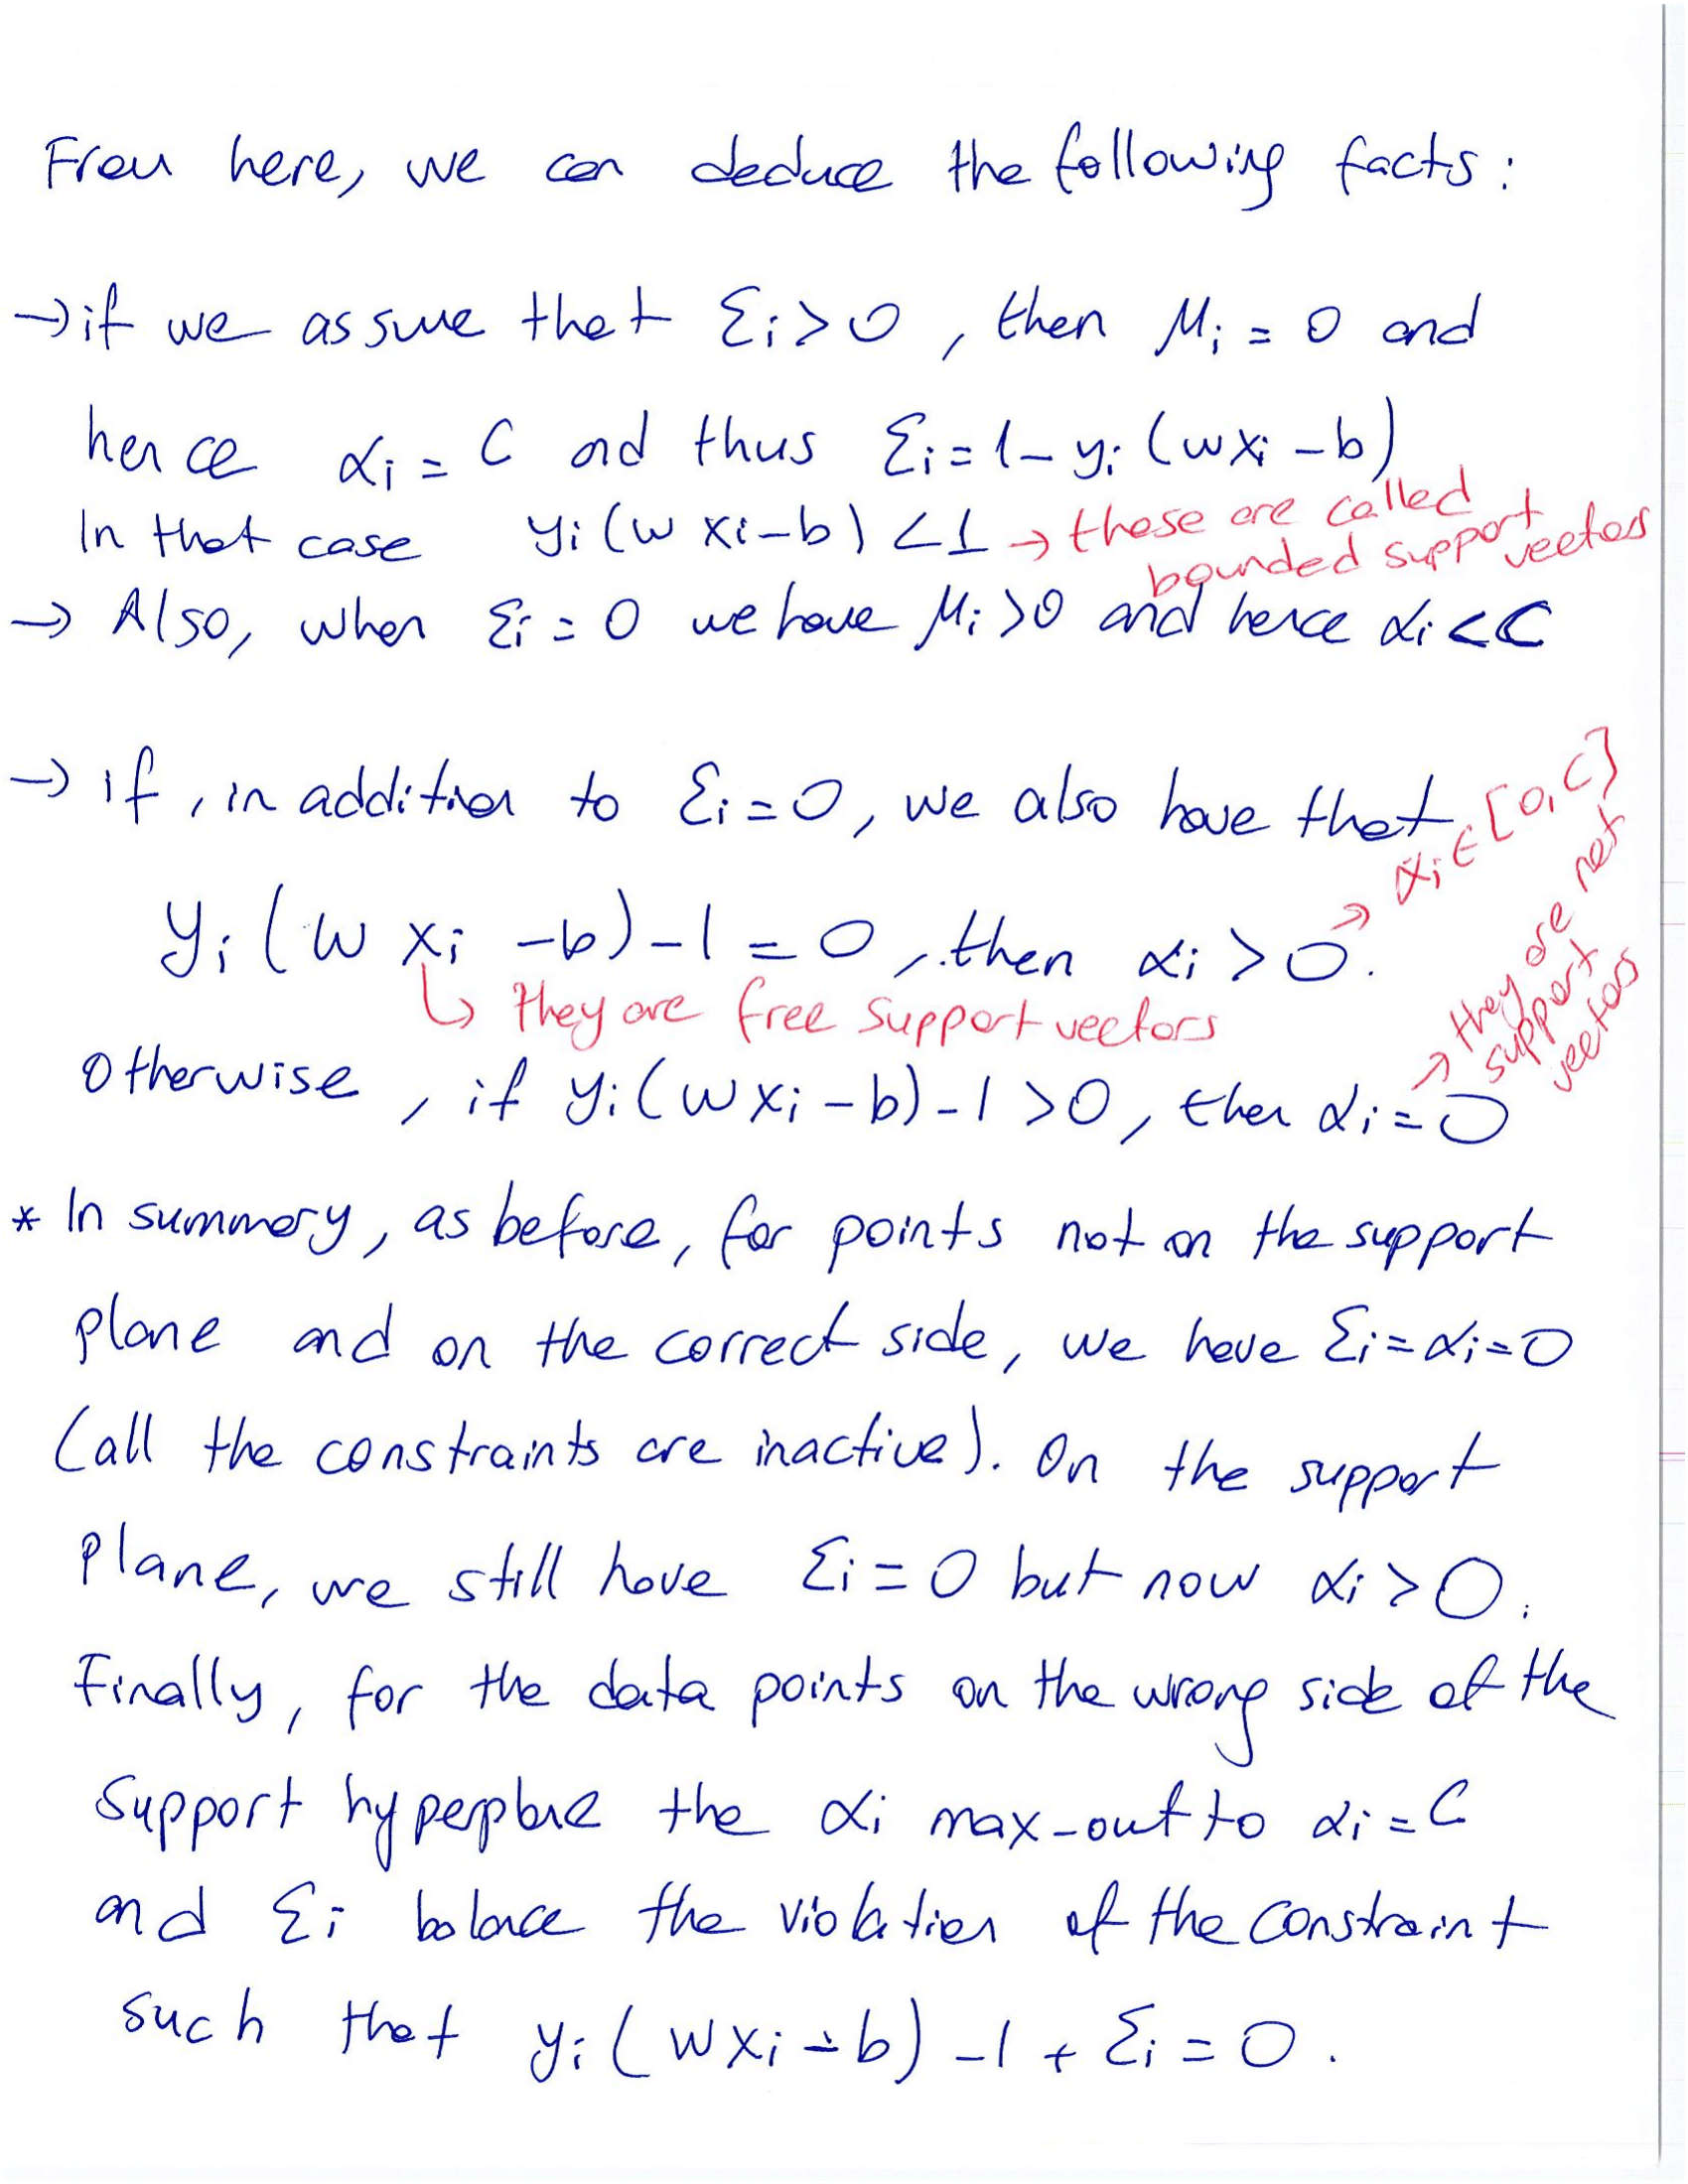 From here, we can deduce the following facts:
→ if we assume that Σi>0, then Mi=0 and
hence αi=C and thus Σi=1-yi(wxi-b)
In that case yi(wxi-b)<1 → these are called
bounded support vectors
→ Also, when Σi=0 we have Mi>0 and hence αi<C
→ if, in addition to Σi=0, we also have that
yi(wxi-b)-1=0, then αi>0. → αi∈[0,C]
↳ they are free support vectors
Otherwise, if yi(wxi-b)-1>0, then αi=0 → they are not
support
vectors
* In summary, as before, for points not on the support
plane and on the correct side, we have Σi=αi=0
(all the constraints are inactive). On the support
Plane, we still have Σi=0 but now αi>0.
Finally, for the data points on the wrong side of the
Support hyperplane the αi max-out to αi=C
and Σi balance the violation of the constraint
such that yi(wxi-b)-1+Σi=0.